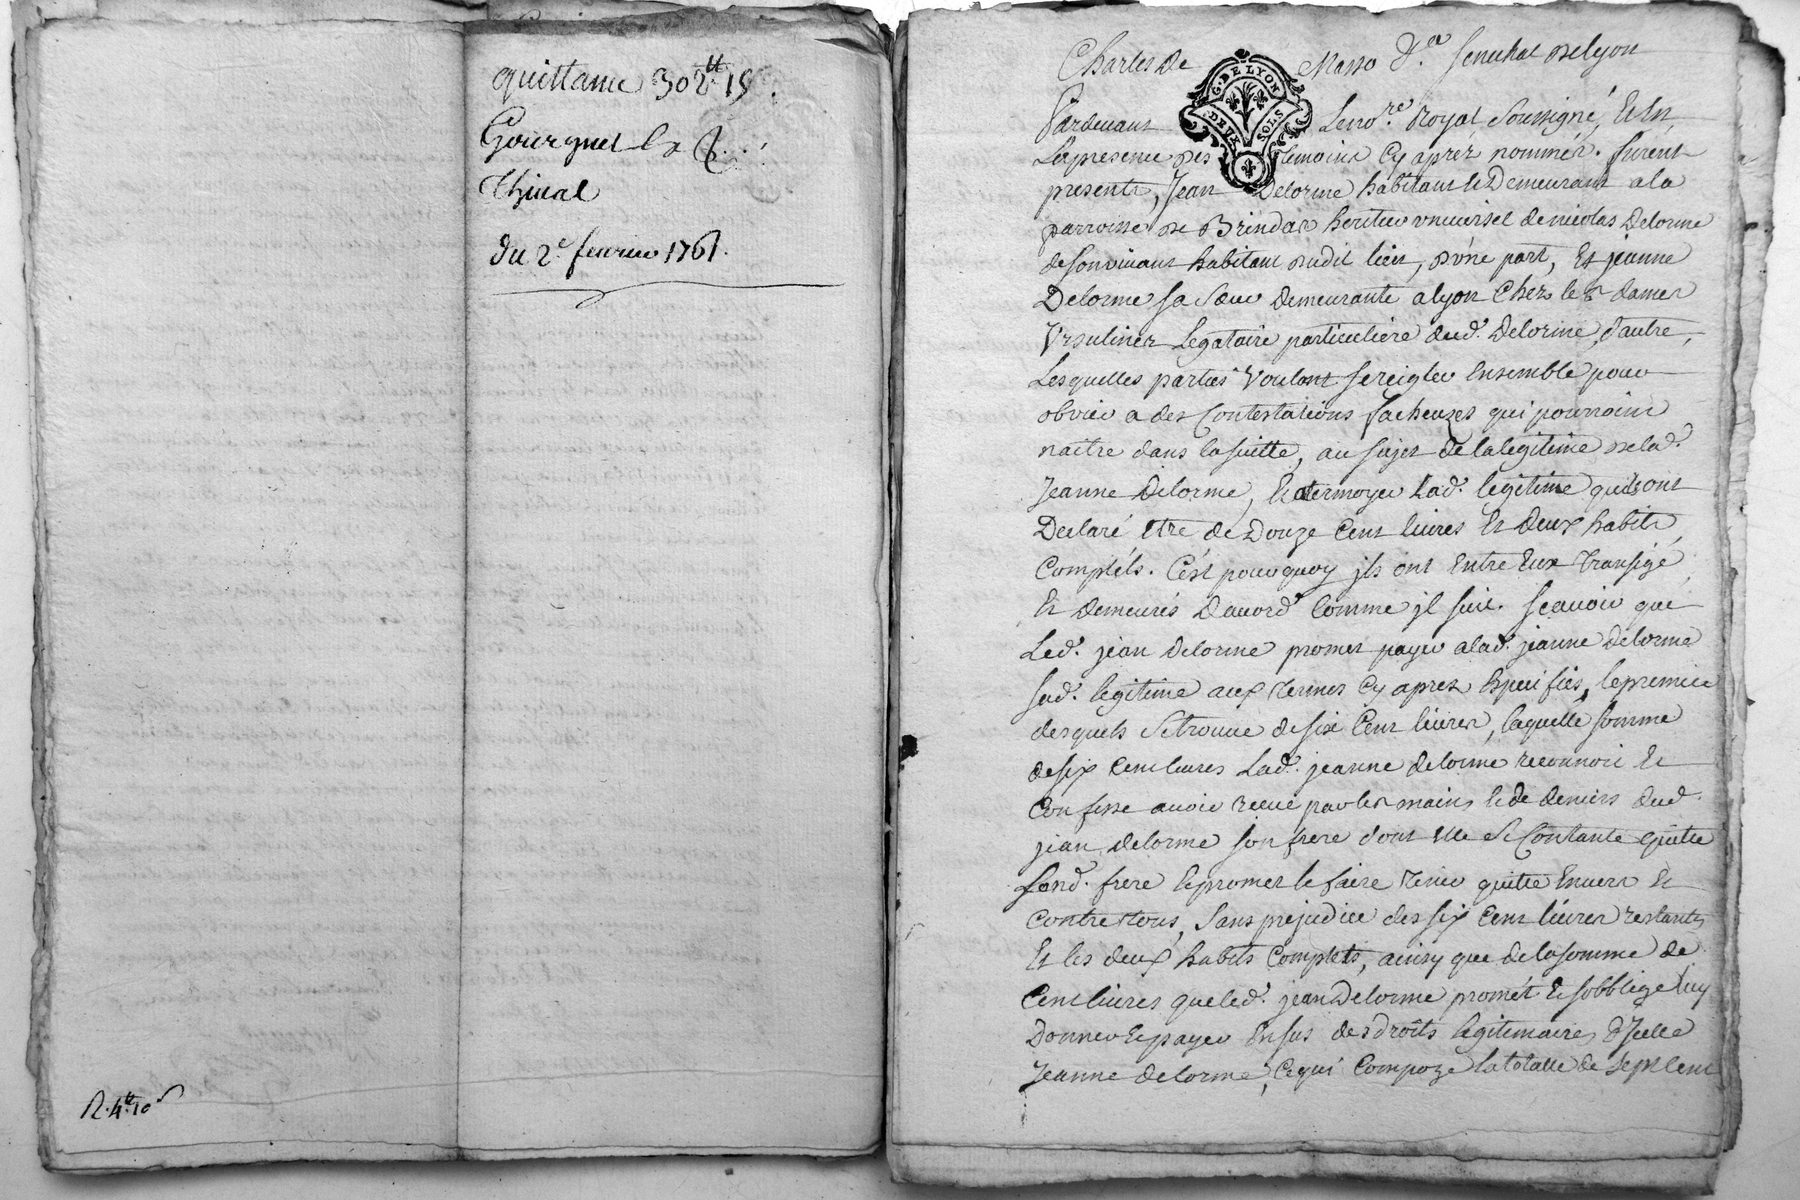 quittance 302ᵗᵗ 15ˢ.
Gourguet
Thival
du 2ᵉ fevrier 1761.
R. 4ᵗᵗ 10ˢ
Charles de Masso Sᵍʳ. Senechal de lyon
G. DE LYON
DEUX SOLS
Pardevant Le noʳᵉ. Royal Soussigné, Et En
La presence des temoins Cy aprés nommés. furent
presents, Jean Delorme habitant & Demeurant a la
parroisse de Brindas heritier universel de nicolas Delorme
de son vivant habitant dudit lieu, d'vne part, Et jeanne
Delorme sa Sœur Demeurante a lyon Chez les dames
Vrsulines Legataire particuliere dud. Delorme, d'autre,
Lesquelles parties Voulant se reigler Ensemble pour
obvier a des Contestations facheuzes qui pourroint
naitre dans la suitte, au sujet de la legitime de lad.
Jeanne Delorme, Et atermoyer Lad. legitime quils ont
Declaré etre de Douze Cent livres Et deux habits
Compléts. C'est pourquoy jls ont Entre Eux Transigé
Et demeurés d'accord Comme jl suit. Sçavoir que
Led. jean Delorme promet payer a lad. jeanne Delorme
sad. legitime aux termes Cy aprez Specifiés, le premier
desquels Se trouve de six Cent livres, laquelle somme
de six Cent livres Lad. jeanne delorme reconnoit Et
Confesse avoir receue par les mains Et de deniers dud.
jean delorme son frere dont elle Se Contante quitte
Sond. frere Et promet le faire tenir quitte Envers Et
contre tous, Sans prejudice des six Cent livres restants
Et les deux habits Complets, ainsy que de la somme de
Cent livres que led. jean Delorme promét Et s'obblige luy
Donner Et payer En sus des droits legitimaires d'Jcelle
Jeanne delorme, Ce qui Compoze la totalle de Sept Cent